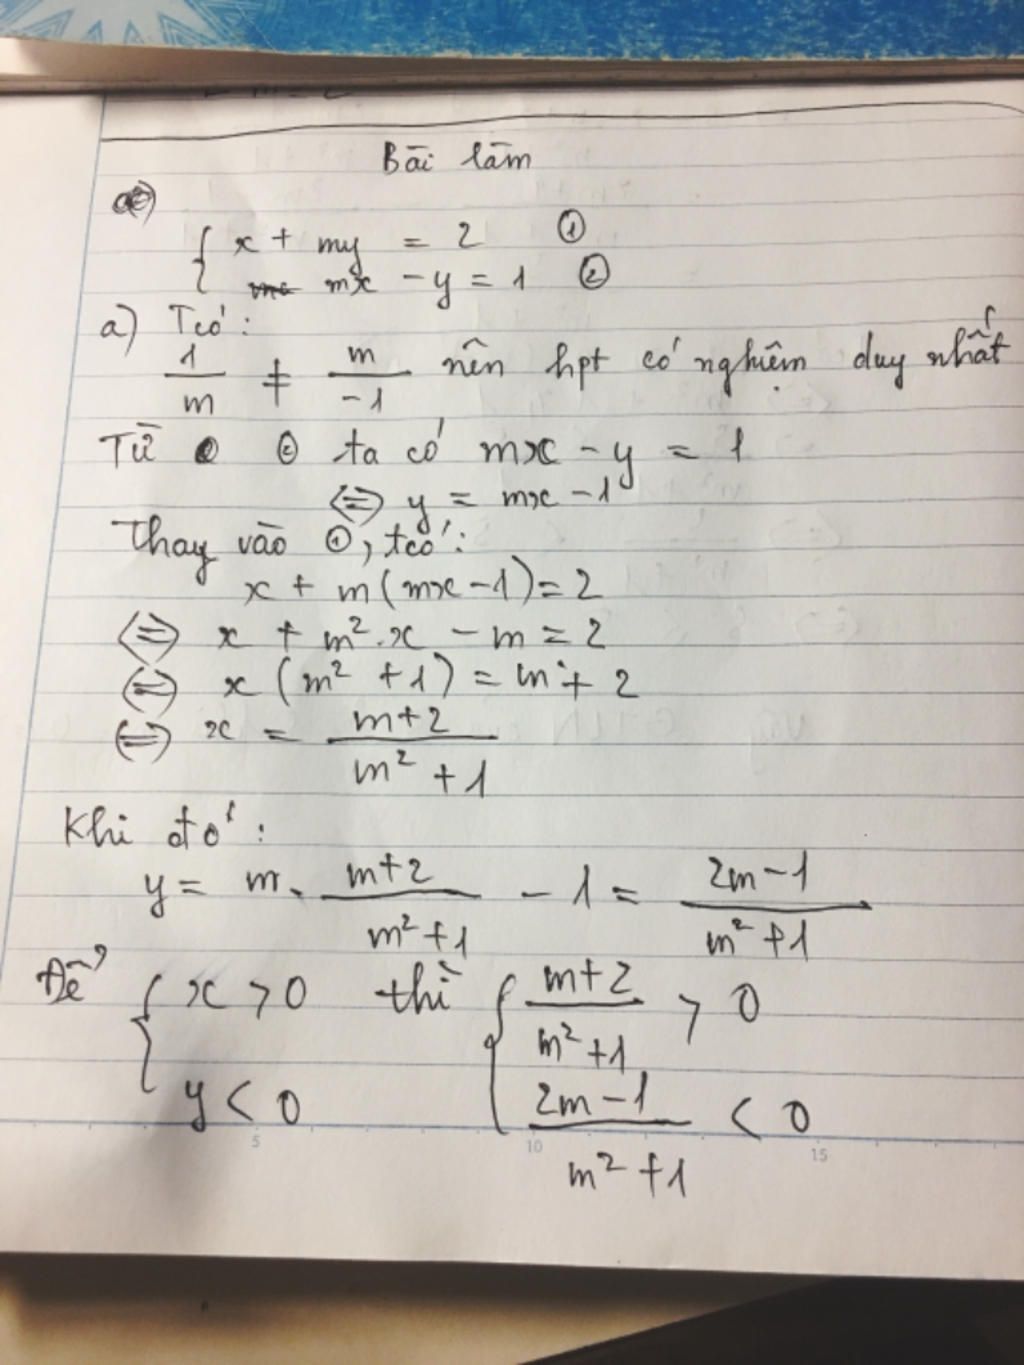 Bài làm
{ x + my = 2 ①
mx - y = 1 ②
a) Tcó:
1/m ≠ m/-1 nên hpt có nghiệm duy nhất
Từ ② ta có mx - y = 1
⇔ y = mx - 1
Thay vào ①, tcó:
x + m(mx - 1) = 2
⇔ x + m².x - m = 2
⇔ x (m² + 1) = m + 2
⇔ x = (m+2)/(m² + 1)
Khi đó:
y = m . (m+2)/(m² + 1) - 1 = (2m-1)/(m² + 1)
Để { x > 0 thì { (m+2)/(m² + 1) > 0
y < 0 (2m - 1)/(m² + 1) < 0
5 10 15